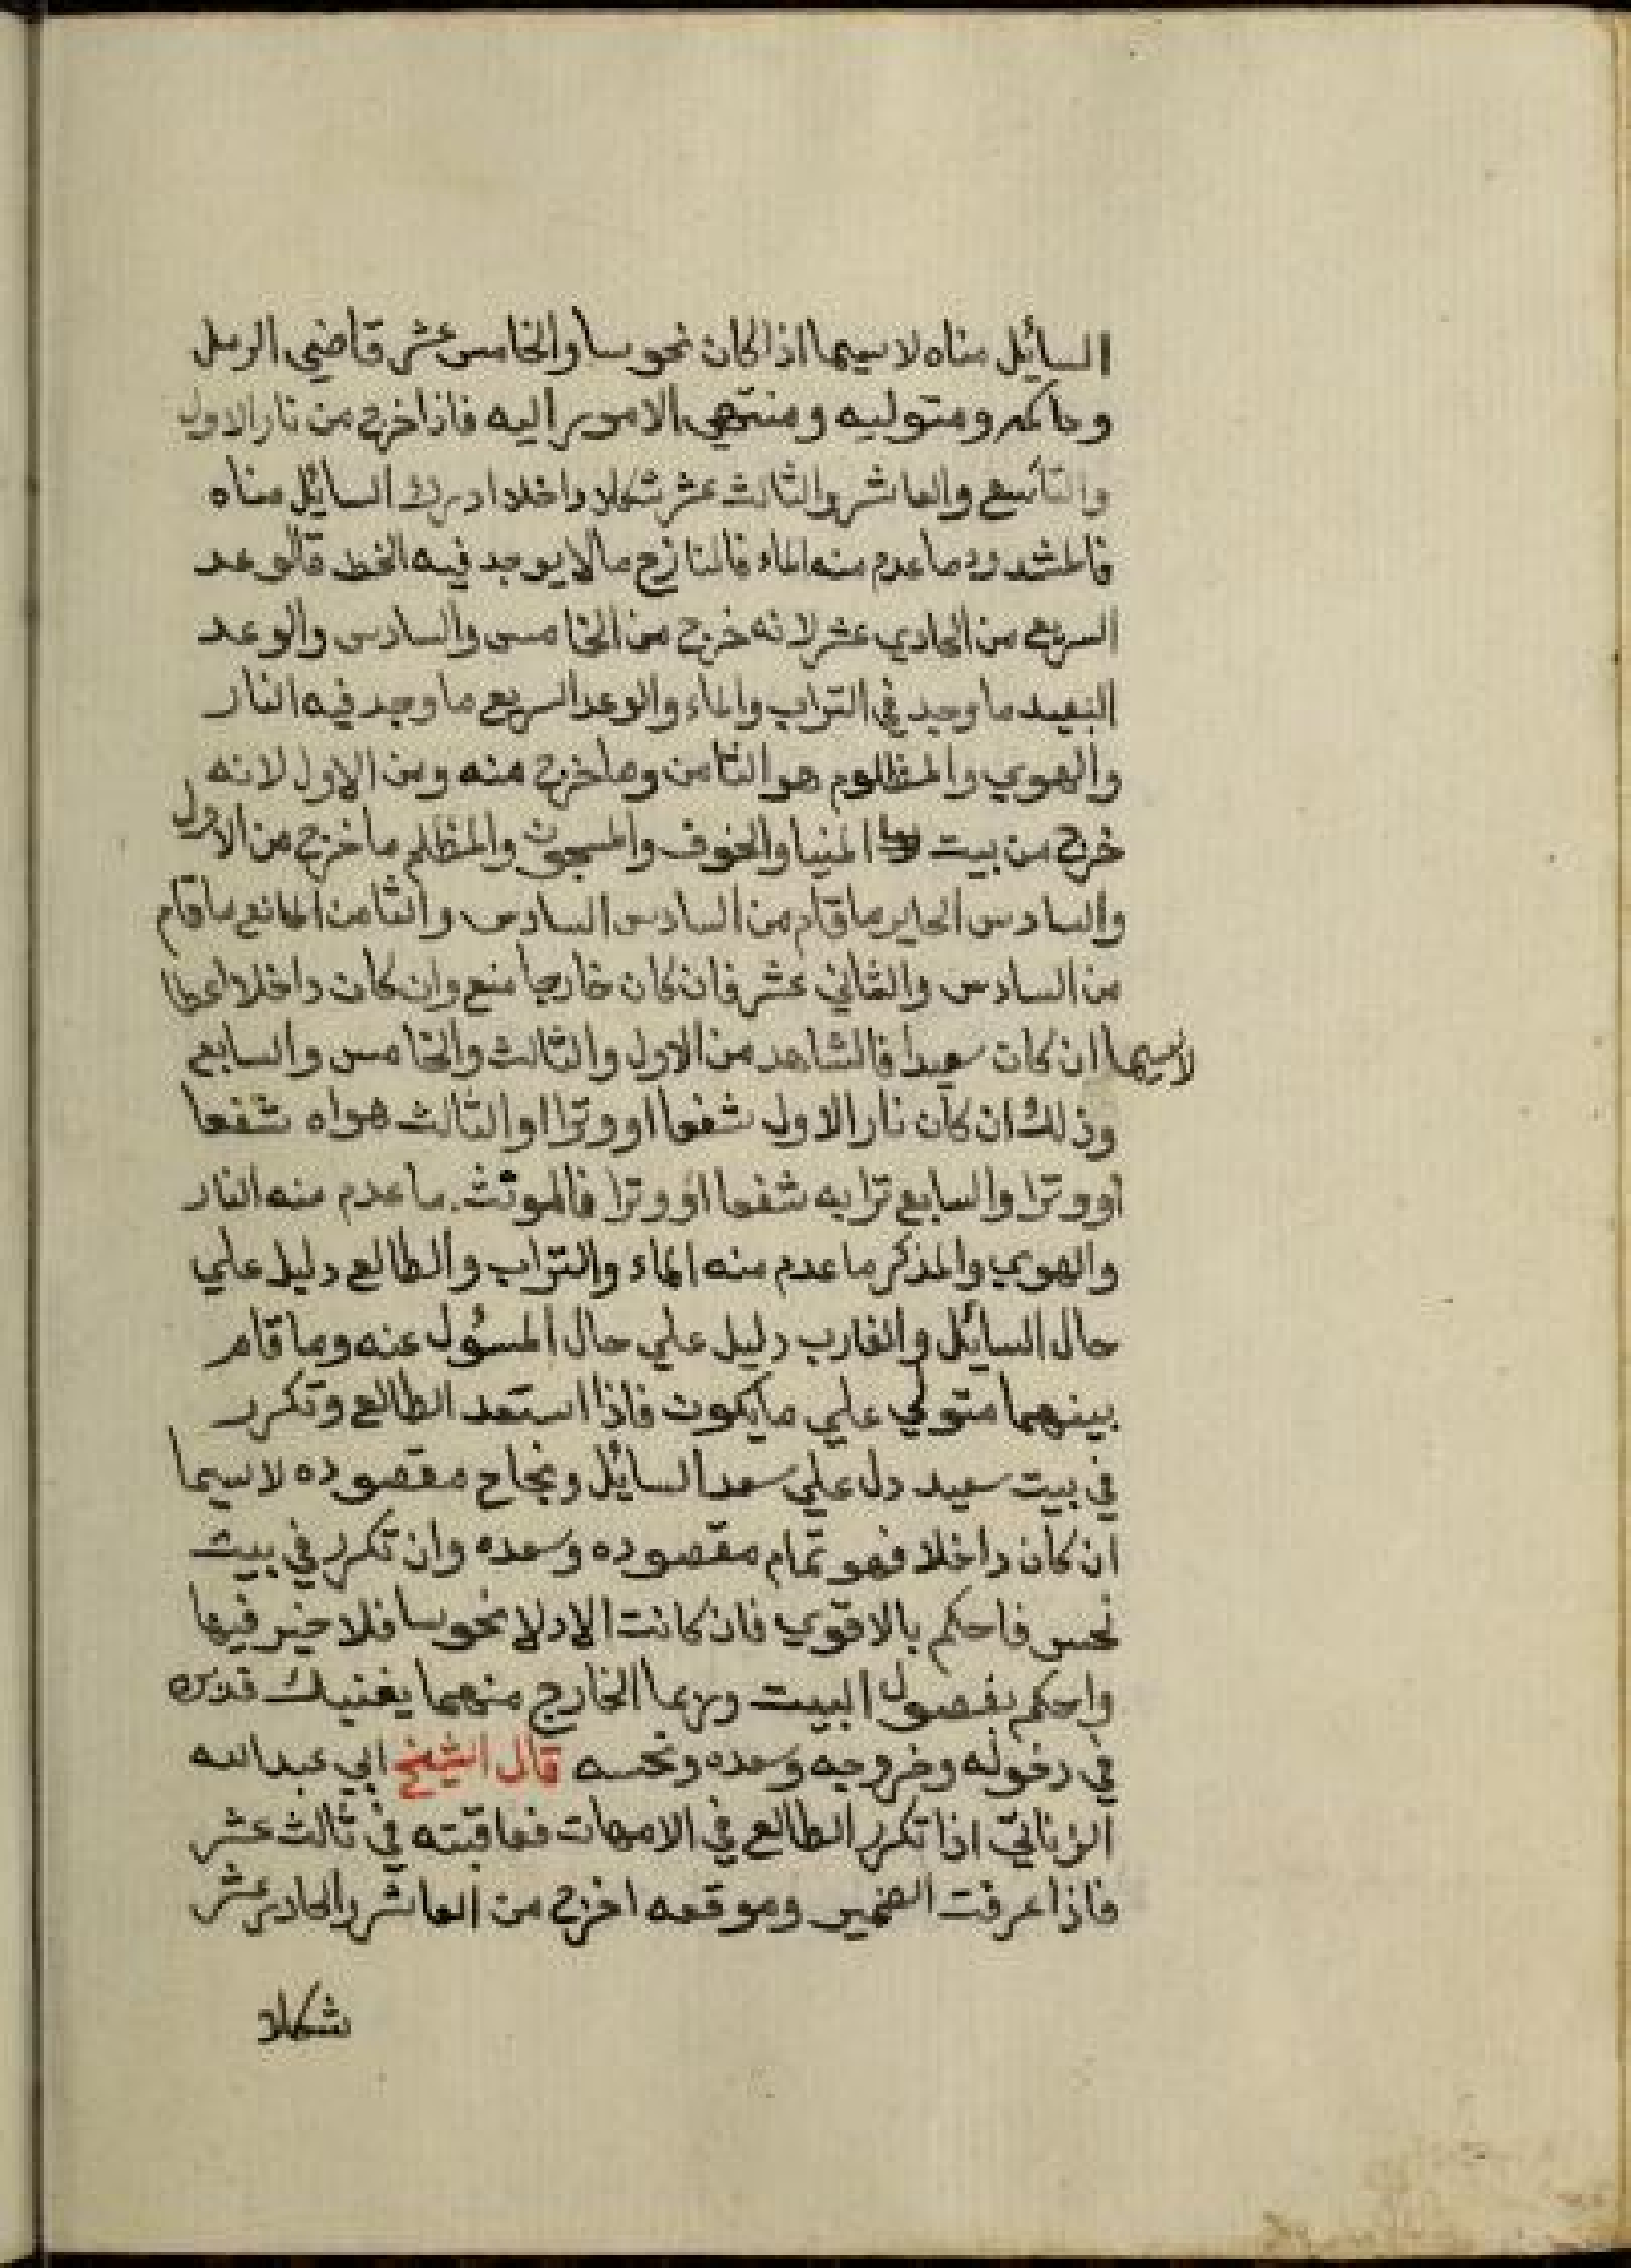 السائل مناه لا سيما اذا كان نحوسا والخامس عشر قاضي الرمل
وحاكمه ومتوليه ومنتهي الامور اليه فاذا خرج من نار الاول
والتاسع والعاشر والثالث عشر شكلا داخلا ادرك السائل مناه
فالمشدود ما عدم منه الماء فالنازح مالا يوجد فيه الخط فالوعد
السريع من الحادي عشر لانه خرج من الخامس والسادس والوعد
البعيد ما وجد في التراب والماء والوعد السريع ما وجد فيه النار
والهوي والمظلوم هو الثامن وما خرج منه ومن الاول لانه
خرج من بيت المنيا والخوف والمسجون والمظلم ما خرج من الاول
والسادس الحاير ما قام من السادس السادس والثامن المانع ما قام
من السادس والثاني عشر فان كان خارجا منع وان كان داخلا اعطا
لاسيما ان كان سعيدا فالشاهد من الاول والثالث والخامس والسابع
وذلك ان كان نار الاول شفعا او وترا او الثالث هواه شفعا
او وترا والسابع ترابه شفعا او وترا فالمونث ما عدم منه النار
والهوي والمذكر ما عدم منه الماء والتراب والطالع دليل علي
حال السائل والغارب دليل علي حال المسؤل عنه وما قام
بينهما متولي علي ما يكون فاذا استعد الطالع وتكرر
في بيت سعيد دل علي سعد السائل ونجاح مقصوده لا سيما
ان كان داخلا فهو تمام مقصوده وسعده وان تكرر في بيت
نحس فاحكم بالاقوي فان كانت الادلا نحوسا فلا خير فيها
واحكم بفصول البيت وربما الخارج منهما يغنيك قدره
في دخوله وخروجه وسعده ونحسه قال الشيخ ابي عبد الله
الزناتي اذا تكرر الطالع في الامهات فعاقبته في ثالث عشر
فاذا عرفت الضمير وموقعه اخرج من العاشر والحادي عشر
شكلا